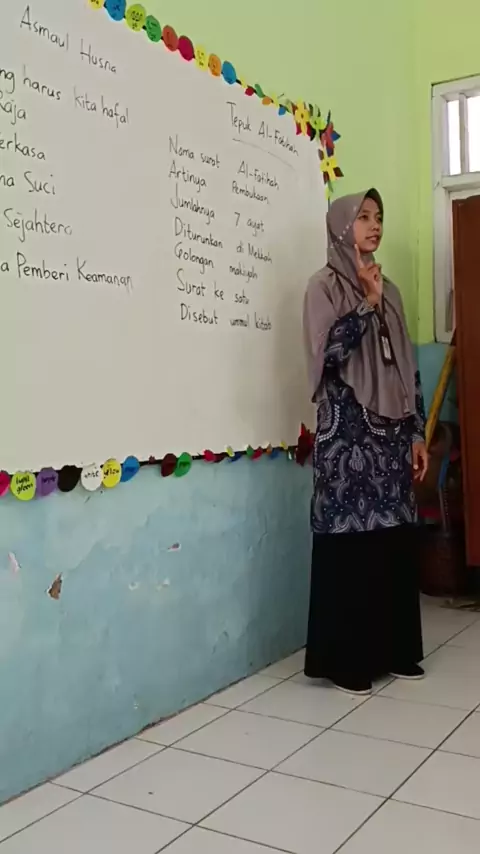 Asmaul Husna
ng harus kita hafal
Raja
erkasa
ha Suci
Sejahtera
a Pemberi Keamanan
Tepuk Al-Fatihah
Nama surat Al-fatihah
Artinya Pembukaan
Jumlahnya 7 ayat
Diturunkan di Mekkah
Golongan makiyah
Surat ke satu
Disebut ummul kitab